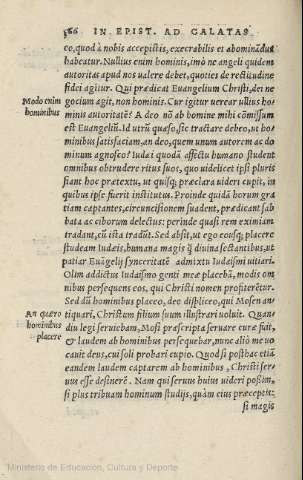 566 IN EPIST. AD GALATAS
co, quod à nobis accepistis, execrabilis et abominādus
habeatur. Nullius enim hominis, imò ne angeli quidem
autoritas apud nos ualere debet, quoties de rectitudine
fidei agitur. Qui prædicat Euangelium Christi, dei ne
Modo enim
hominibus
gocium agit, non hominis. Cur igitur uerear ullius ho
minis autoritatē? A deo nō ab homine mihi cōmissum
est Euangeliū. Id utrū quæso, sic tractare debeo, ut ho
minibus satisfaciam, an deo, quem unum autorem ac do
minum agnosco? Iudæi quodā affectu humano student
omnibus obtrudere ritus suos, quo uidelicet ipsi pluris
fiant hoc prætextu, ut quisq; præclara uideri cupit, in
quibus ipse fuerit institutus. Proinde quidā horum gra
tiam captantes, circuncisionem suadent, prædicant sab
bata ac ciborum delectus: perinde quasi rem eximiam
tradant, cū ista tradūt. Sed absit, ut ego eoūsq; placere
studeam Iudæis, humana magis q̃ diuina sectantibus, ut
patiar Euāgelij synceritatē admixtu Iudaismi uitiari.
Olim addictus Iudaismo genti meæ placebā, modis om
nibus persequens eos, qui Christi nomen profiterētur.
Sed dū hominibus placeo, deo displiceo, qui Mosen an
An quæro
hominibus
placere
tiquari, Christum filium suum illustrari uoluit. Quam
diu legi seruiebam, Mosi præscripta seruare curæ fuit,
& laudem ab hominibus persequebar, nunc aliò me uo
cauit deus, cui soli probari cupio. Quod si posthac etiā
eandem laudem captarem ab hominibus, Christi ser
uus esse desinerē. Nam qui seruus huius uideri possim,
si plus tribuam hominum studijs, quàm eius præceptis:
si magis
Ministerio de Educación, Cultura y Deporte